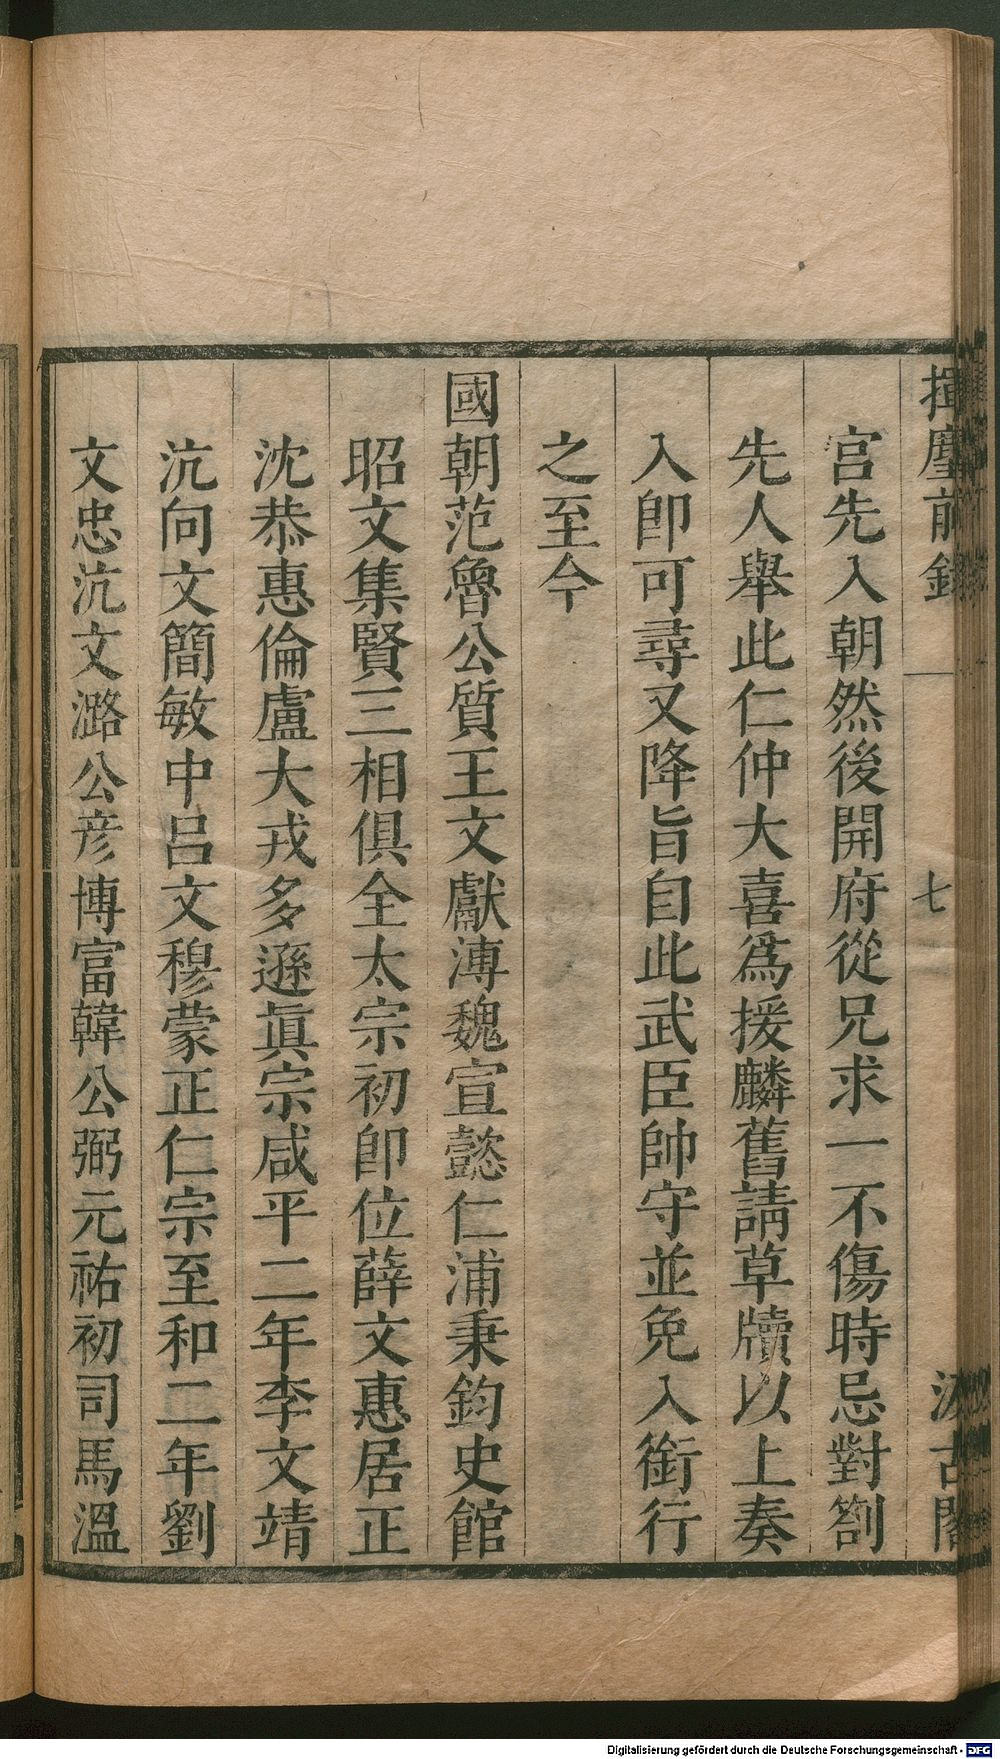 揮麈前錄
七
汲古閣
宮先入朝然後開府從兄求一不傷時忌對劄
先人舉此仁仲大喜爲援麟舊請草牘以上奏
入卽可尋又降旨自此武臣帥守並免入銜行
之至今
國朝范魯公質王文獻溥魏宣懿仁浦秉鈞史館
昭文集賢三相俱全太宗初卽位薛文惠居正
沈恭惠倫盧大戎多遜眞宗咸平二年李文靖
沆向文簡敏中呂文穆蒙正仁宗至和二年劉
文忠沆文潞公彦博富韓公弼元祐初司馬溫
Digitalisierung gefördert durch die Deutsche Forschungsgemeinschaft - DFG